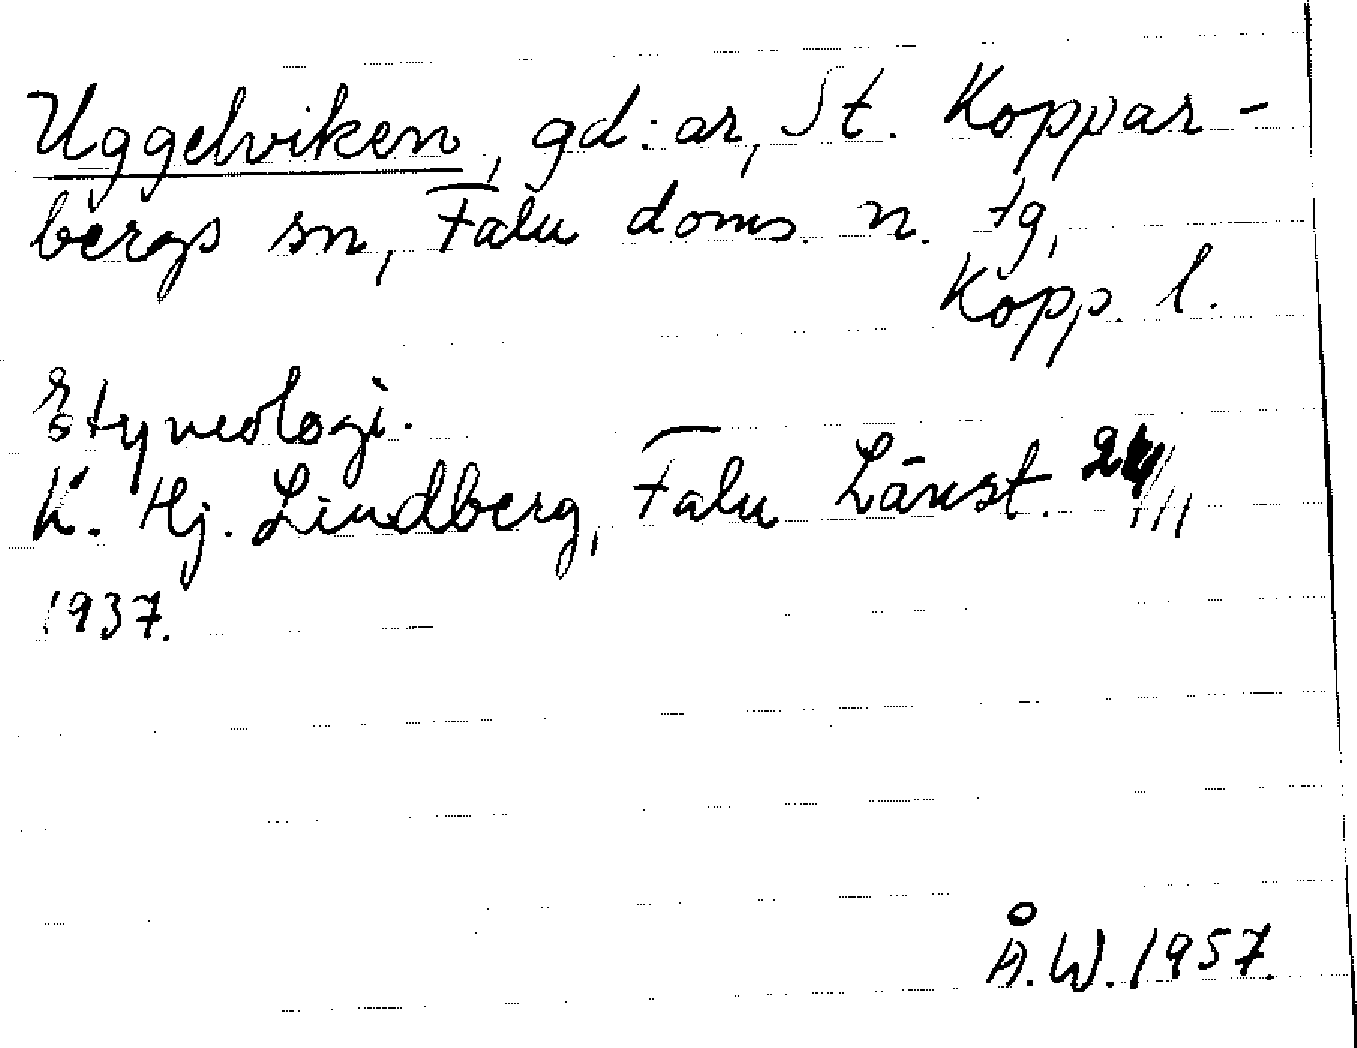 Uggelviken, gd:ar, St. Koppar-
bergs sn, Falu doms. n. tg,
Kopp. l.
Etymologi.
K. Hj. Lindberg, Falu Länst. 24/11
1937.
Å.W. 1957.